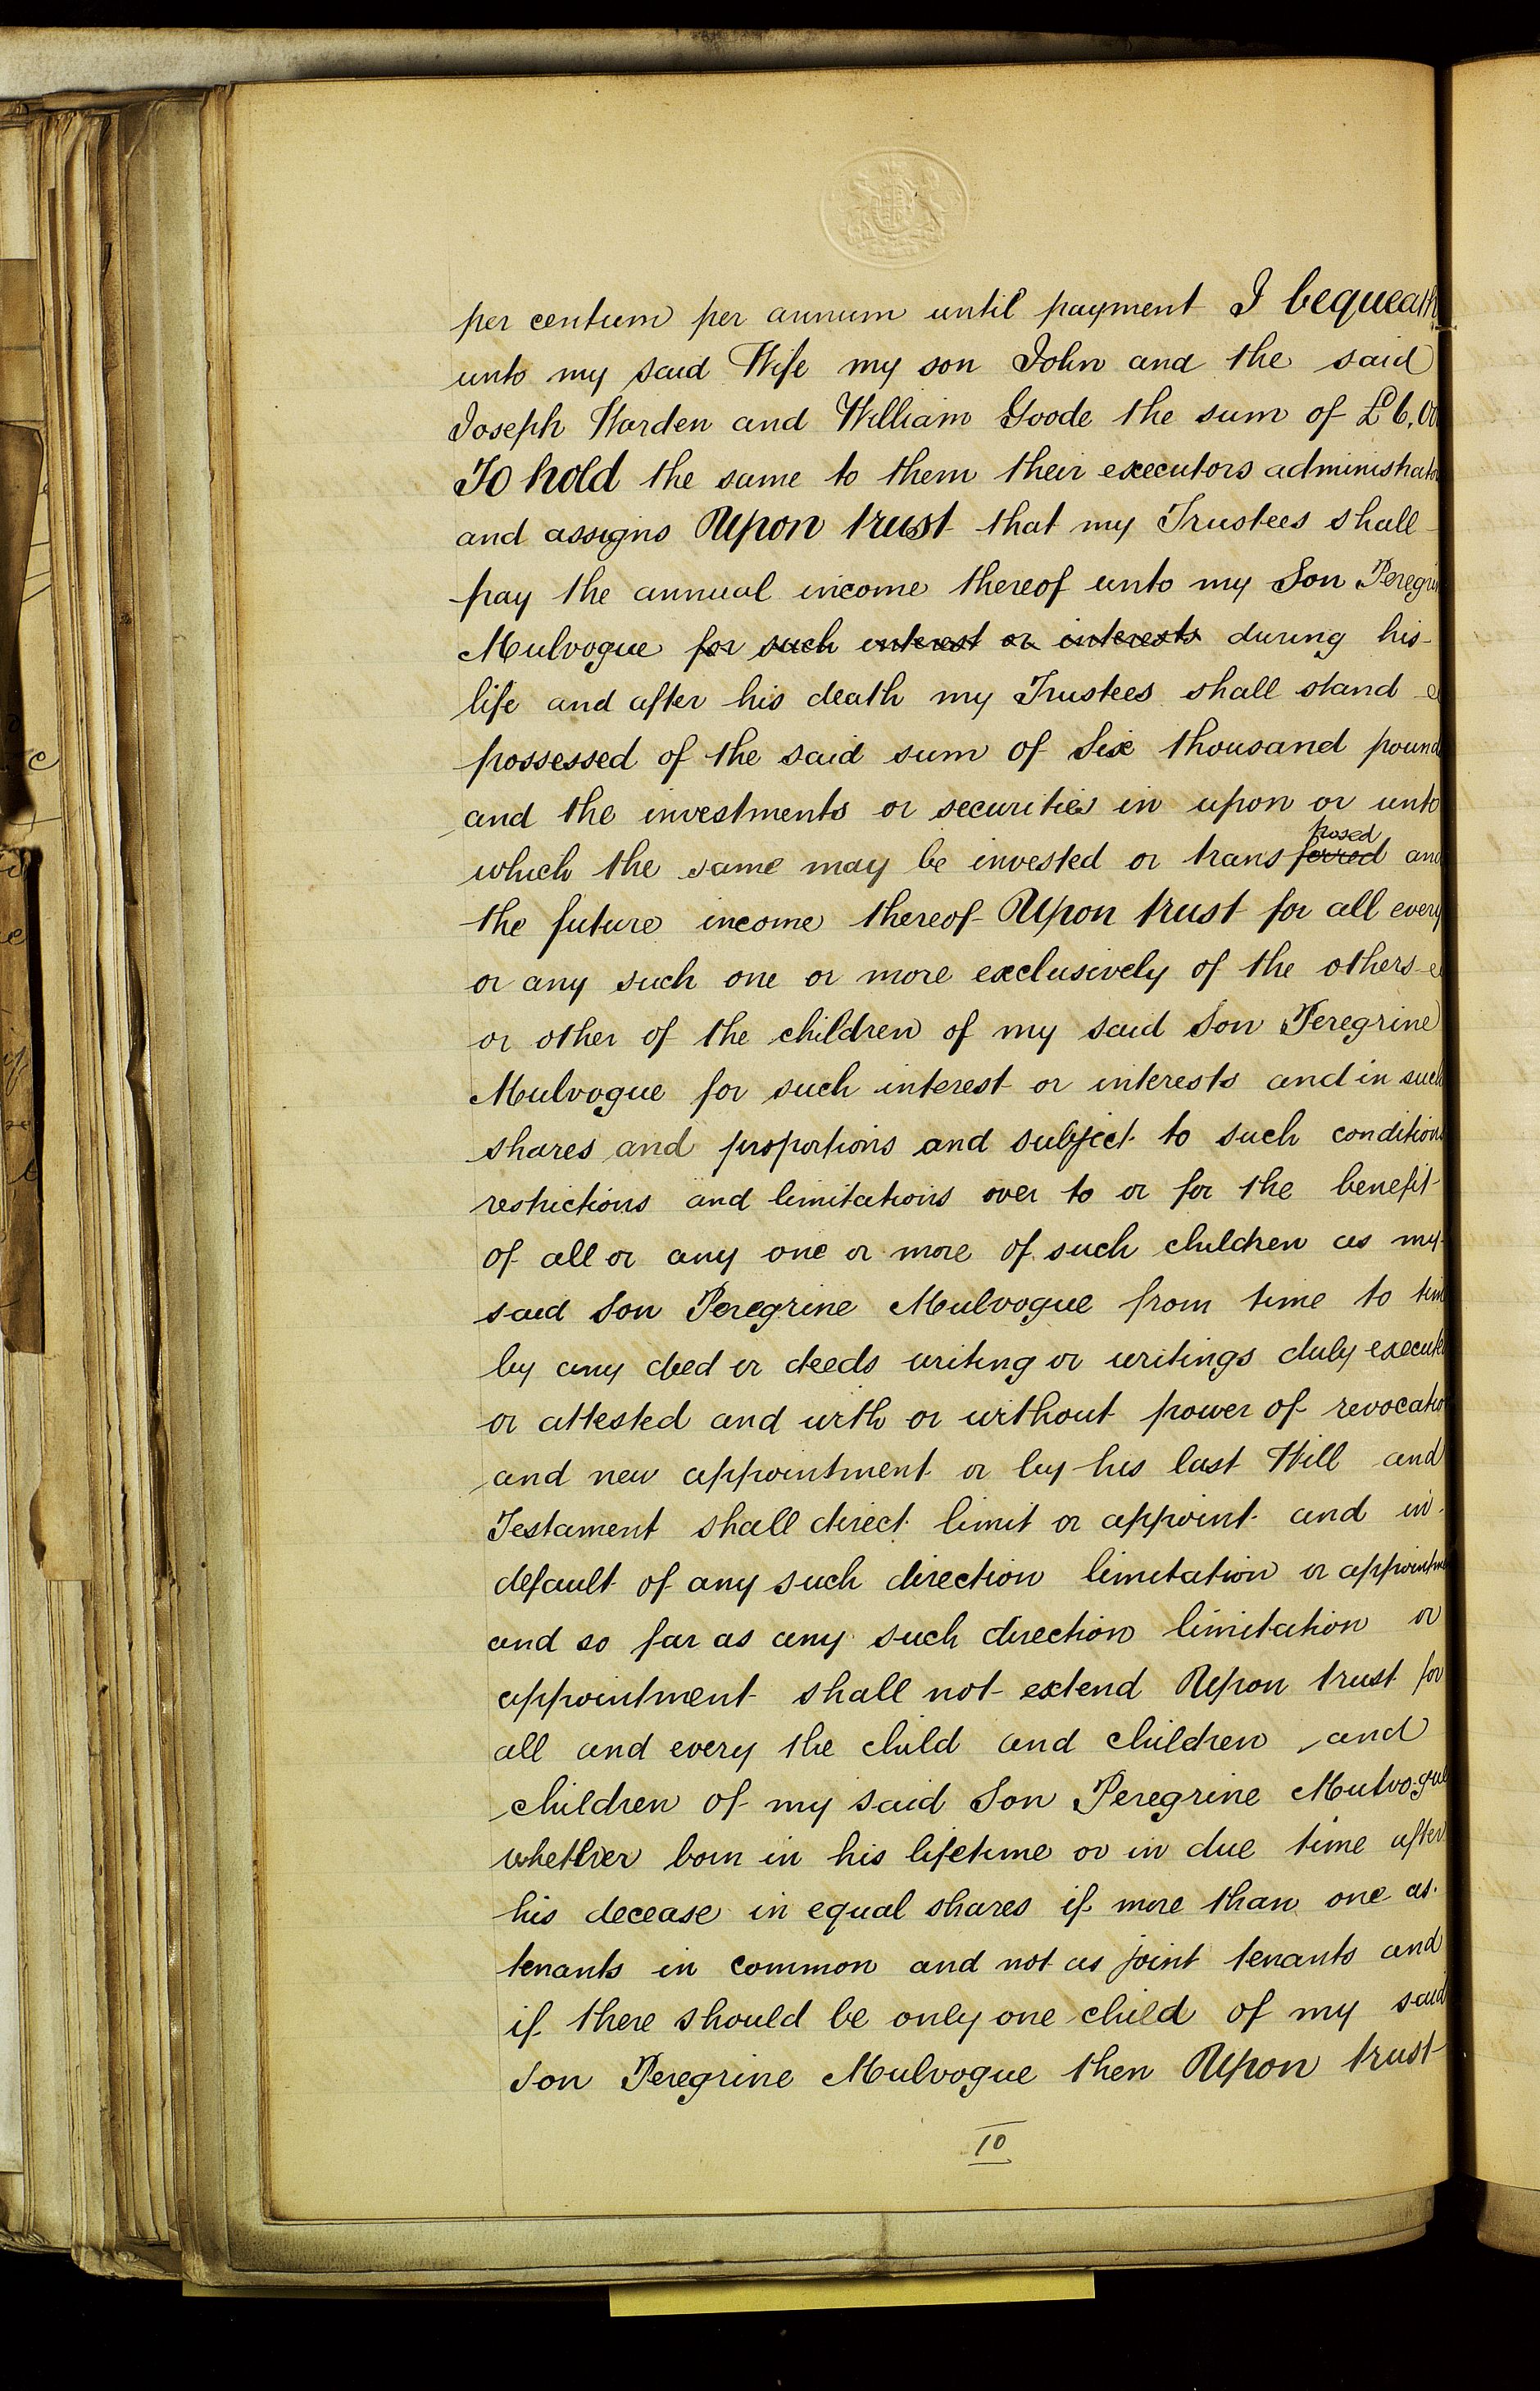 per centum per annum until payment I bequeath
unto my said Wife my son John and the said
Joseph Warden and William Goode the sum of £6,00
To hold the same to them their executors administrato
and assigns Upon trust that my Trustees shall
pay the annual income thereof unto my Son Peregrin
Mulvogue for such interest or interests during his
life and after his death my Trustees shall stand
possessed of the said sum of Six thousand pound
and the investments or securities in upon or unto
posed
which the same may be invested or trans ferred and
the future income thereof Upon trust for all every
or any such one or more exclusively of the others
or other of the children of my said Son Peregrine
Mulvogue for such interest or interests and in such
shares and proportions and subject to such conditions
restrictions and limitations over to or for the benefit
of all or any one or more of such children as my
said Son Peregrine Mulvogue from time to tim
by any deed or deeds writing or writings duly execute
or attested and with or without power of revocatio
and new appointment or by his last Will and
Testament shall direct limit or appoint and in
default of any such direction limitation or appointme
and so far as any such direction limitation or
appointment shall not extend Upon trust for
all and every the child and children and
children of my said Son Peregrine Mulvogue
whether born in his lifetime or in due time after
his decease in equal shares if more than one as
tenants in common and not as joint tenants and
if there should be only one child of my said
Son Peregrine Mulvogue then Upon trust
10